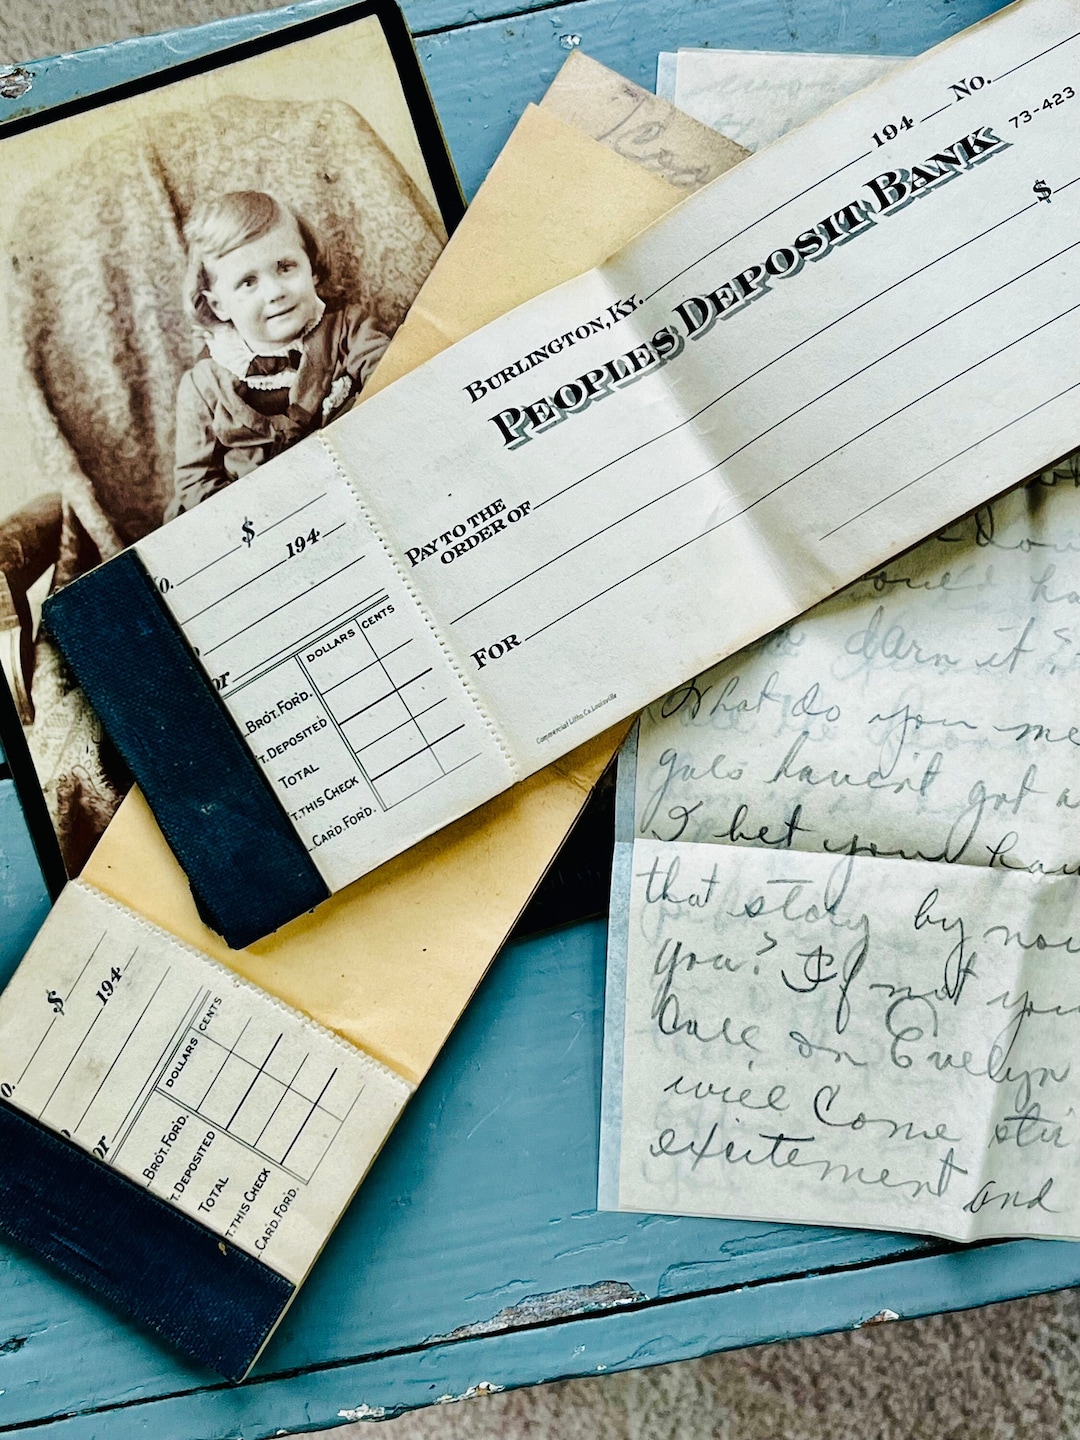 194 No.
73-423
BURLINGTON, KY.
PEOPLES DEPOSIT BANK
$
PAY TO THE
ORDER OF
FOR
Commercial Litho. Co. Louisville
o. $
194
or
DOLLARS CENTS
BRO'T. FOR'D.
'T. DEPOSITED
TOTAL
T. THIS CHECK
CAR'D. FOR'D.
o. $
194
or
DOLLARS CENTS
BRO'T. FOR'D.
T. DEPOSITED
TOTAL
T. THIS CHECK
CAR'D. FOR'D.
darn it
What do you me
gals haven't got a
I bet you hav
that story by now
you? If not you
Call on Evelyn
will come stir
excitement and